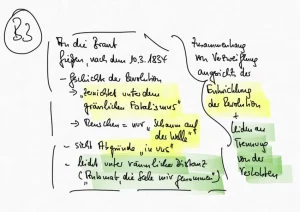 B3
An die Braut
Gießen, nach dem 10.3.1834
- Geschichte der Revolution
→ "zernichtet unter dem
gräßlichen Fatalismus"
→ Menschen = nur "Schaum auf
der Welle"
- sieht Abgründe "in uns"
- leidet unter räumlicher Distanz
("Automat, die Seele mir genommen")
Zusammenhang
von Verzweiflung
angesichts der
Entwicklung
der Revolution
+
Leiden an
Trennung
von der
Verlobten